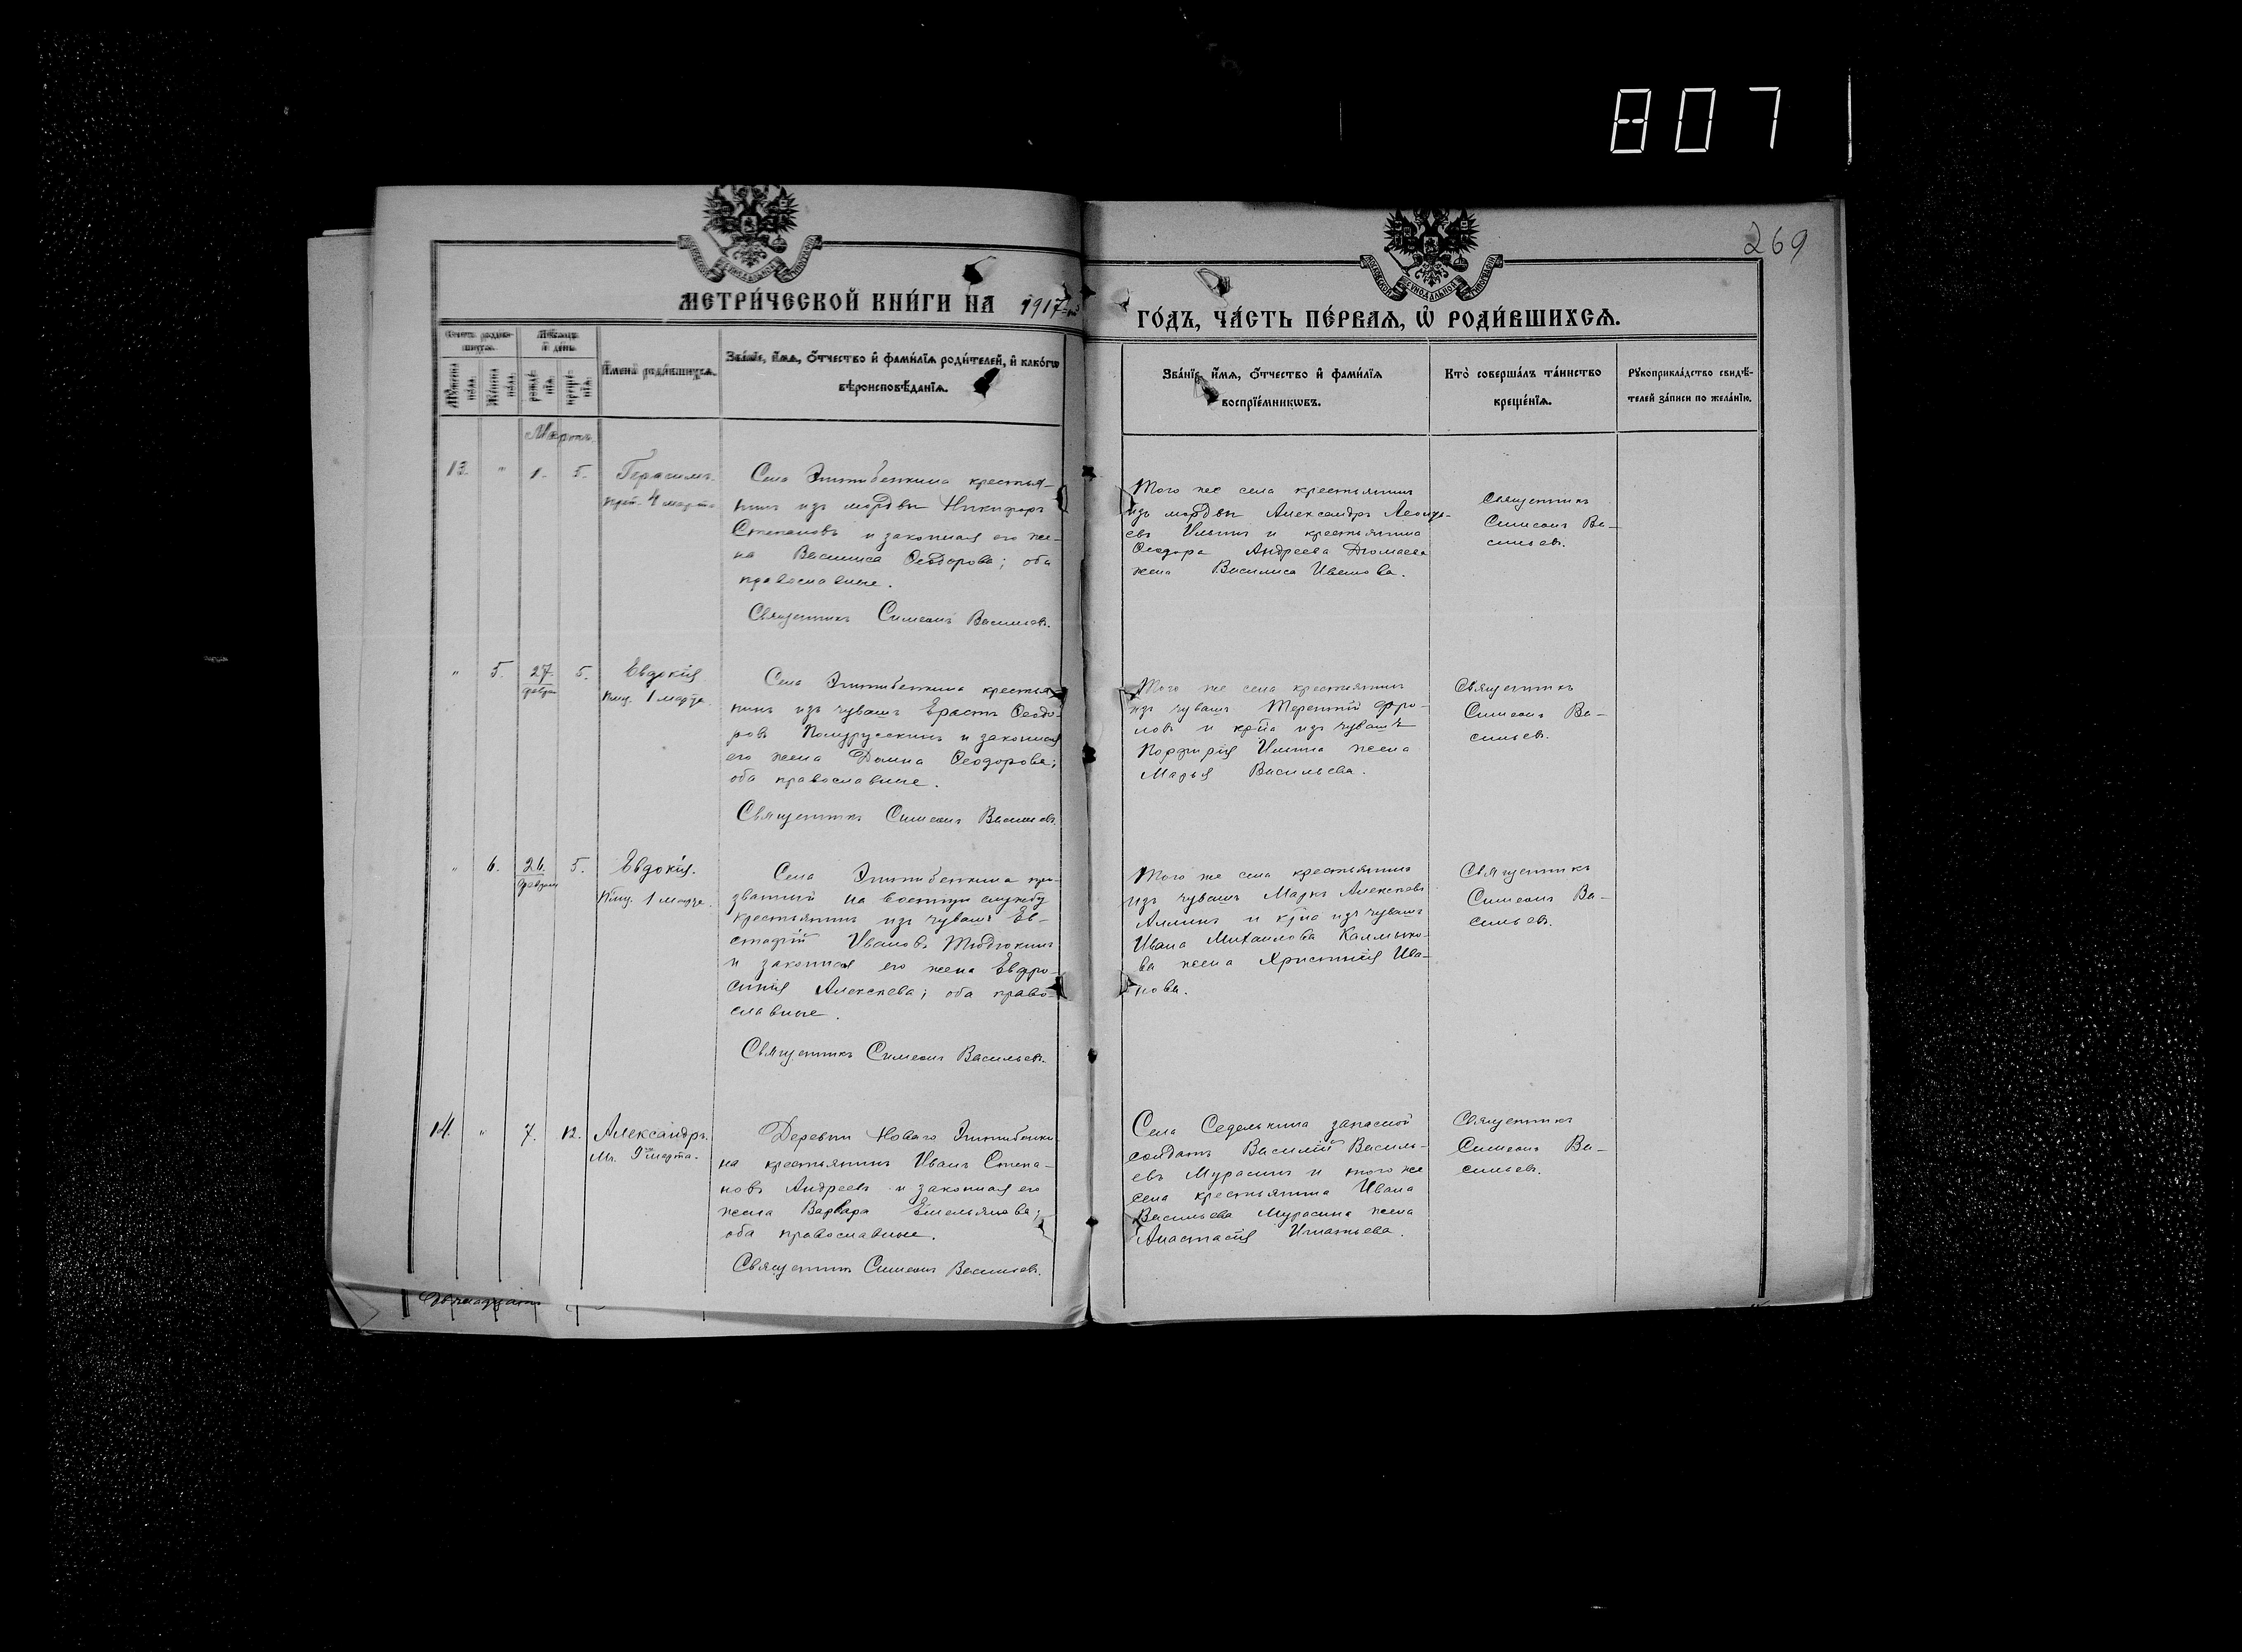 807
269
МЕТРИ́ЧЕСКОЙ КНИ́ГИ НА 1917-й
ГО́ДЪ, ЧА́СТЬ ПЕ́РВАЯ, Ѡ РОДИ́ВШИХСЯ.
Счетъ родившихся.
Мѣсяцъ и день.
Мужеска пола.
Женска пола.
рождения.
крещения.
Имена родившихся.
Званіе, имя, отчество и фамилія родителей, и какогѡ
вѣроисповѣданія.
Званіе, имя, отчество и фамилія
воспріемникѡвъ.
Кто совершалъ таинство
крещенія.
Рукоприкладство свидѣ-
телей записи по желанію.
Мартъ.
13. " 1. 5. Герасимъ.
4 марта
Села Эштебенкина крестья-
нинъ изъ мордвы Никифоръ
Степановъ и законная его же-
на Василиса Ѳеодорова; оба
православные.
Священникъ Симеонъ Васильевъ.
Того же села крестьянинъ
изъ мордвы Александръ
евъ Ильинъ и крестьянина
Ѳеодора Андреева Дюмаева
жена Василиса Иванова.
Священникъ
Симеонъ Ва-
сильевъ.
" 5. 27. февра 5. Евдокія
1 марта.
Села Эштебенкина крестья-
нинъ изъ чувашъ Ерастъ Ѳеодо-
ровъ Полурусскинъ и законная
его жена Домна Ѳеодорова;
оба православные.
Священникъ Симеонъ Васильевъ.
Того же села крестьянинъ
изъ чувашъ Терентій Фро-
ловъ и кр-на изъ чувашъ
Порфирія Ильина жена
Марья Васильева.
Священникъ
Симеонъ Ва-
сильевъ.
" 6. 26. февраля 5. Евдокія.
1 марта.
Села Эштебенкина при-
званный на военную службу
крестьянинъ изъ чувашъ Ев-
стафій Ивановъ Тюдюкинъ
и законная его жена Евфро-
синія Алексѣева; оба право-
славные.
Священникъ Симеонъ Васильевъ.
Того же села крестьянинъ
изъ чувашъ Маркъ Алексѣевъ
и кр-на изъ чувашъ
Ивана Михаилова Калмыко-
ва жена Христинія Ива-
нова.
Священникъ
Симеонъ Ва-
сильевъ.
14. " 7. 12. Александръ.
9 марта.
Деревни Новаго Эштебенки-
на крестьянинъ Иванъ Степа-
новъ Андреевъ и законная его
жена Варвара Емельянова;
оба православные.
Священникъ Симеонъ Васильевъ.
Села Седелькина запасной
солдатъ Василій Василь-
евъ Мурасинъ и того же
села крестьянина Ивана
Васильева Мурасина жена
Анастасія Игнатьева.
Священникъ
Симеонъ Ва-
сильевъ.